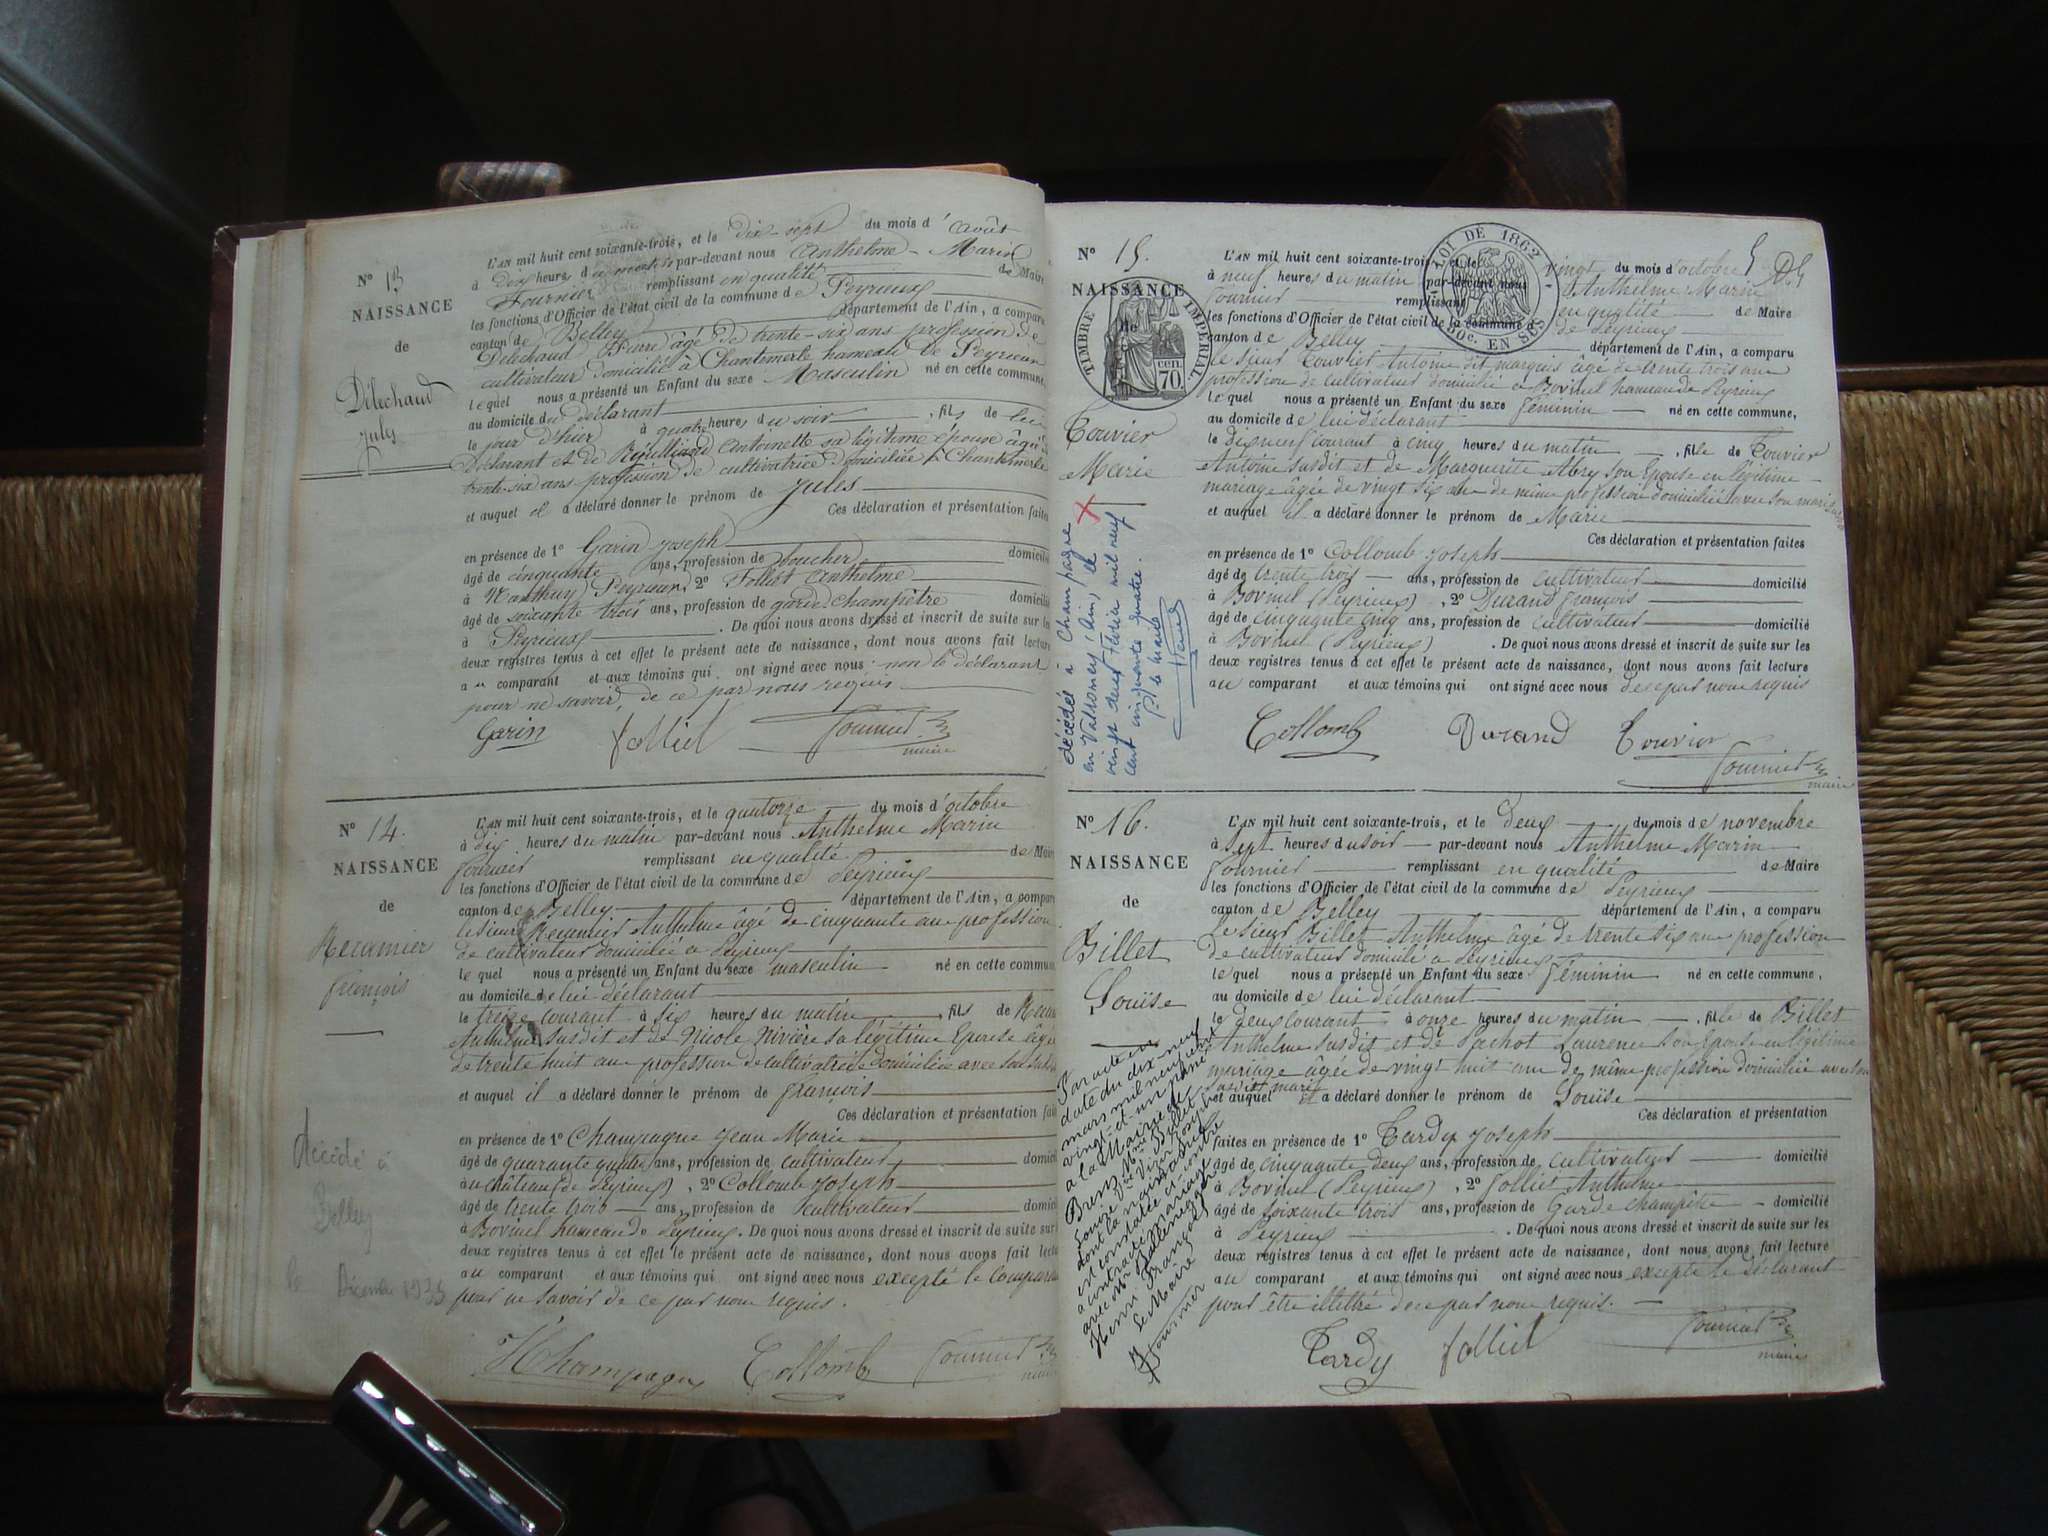 N° 13
NAISSANCE
de
Délechaud
July
L'AN mil huit cent soixante-trois, et le dix-sept du mois d'Août
à dix heures du matin par-devant nous Anthelme-Marin
Fournier remplissant en qualité de Maire
les fonctions d'Officier de l'état civil de la commune de Peyrieux
canton de Belley département de l'Ain, a comparu
Délechaud Pierre âgé de trente-six ans profession de
cultivateur domicilié à Chantemerle hameau de Peyrieux
lequel nous a présenté un Enfant du sexe Masculin né en cette commune,
au domicile du déclarant
le jour d'hier à quatre heures du soir, fils de lui
Déclarant et de Antoinette sa légitime épouse âgée de
trente-six ans profession de cultivatrice domiciliée à Chantemerle
et auquel il a déclaré donner le prénom de Jules
Ces déclaration et présentation faites
en présence de 1° Garin Joseph
âgé de cinquante ans, profession de boucher domicilié
à Nanthuy Peyrieux, 2° Folliet Anthelme
âgé de soixante trois ans, profession de garde-champêtre domicilié
à Peyrieux. De quoi nous avons dressé et inscrit de suite sur les
deux registres tenus à cet effet le présent acte de naissance, dont nous avons fait lecture
au comparant et aux témoins qui ont signé avec nous non le déclarant
pour ne savoir, de ce par nous requis
Garin Folliet Fournier
maire
N° 14.
NAISSANCE
de
Recamier
François
Décédé à
Belley
le Décembre 1935
L'AN mil huit cent soixante-trois, et le quatorze du mois d'octobre
à dix heures du matin par-devant nous Anthelme Marin
Fournier remplissant en qualité de Maire
les fonctions d'Officier de l'état civil de la commune de Peyrieux
canton de Belley département de l'Ain, a comparu
le sieur Recamier Anthelme âgé de cinquante ans profession
de cultivateur domicilié à Peyrieux
lequel nous a présenté un Enfant du sexe masculin né en cette commune
au domicile de lui déclarant
le treize courant à six heures du matin, fils de Recamier
Anthelme susdit et de Nicole Rivière sa légitime Epouse âgée
de trente huit ans profession de cultivatrice domiciliée avec son susdit
et auquel il a déclaré donner le prénom de françois
Ces déclaration et présentation faites
en présence de 1° Champagne Jean Marie
âgé de quarante quatre ans, profession de cultivateur domicilié
à au château (de Peyrieux), 2° Collomb Joseph
âgé de trente trois ans, profession de cultivateur domicilié
à Bovinel hameau de Peyrieux. De quoi nous avons dressé et inscrit de suite sur les
deux registres tenus à cet effet le présent acte de naissance, dont nous avons fait lecture
au comparant et aux témoins qui ont signé avec nous excepté le comparant
pour ne savoir de ce par nous requis.
Champagne Collomb Fournier
maire
N° 15.
NAISSANCE
de
TIMBRE IMPERIAL
70 cen.
LOI DE 1862
50c. EN SUS
Touvier
Marie
décédé à Champagne
en Valromey (Ain) le
vingt deux Février mil neuf
cent cinquante quatre.
P. le maire
L'AN mil huit cent soixante-trois et le vingt du mois d'octobre
à neuf heures du matin par-devant nous Anthelme Marin
Fournier remplissant en qualité de Maire
les fonctions d'Officier de l'état civil de la commune de Peyrieux
canton de Belley département de l'Ain, a comparu
le sieur Touvier Antoine dit marquis âgé de trente trois ans
profession de cultivateur domicilié à Bovinel hameau de Peyrieux
lequel nous a présenté un Enfant du sexe féminin né en cette commune,
au domicile de lui déclarant
le Dixneuf courant à cinq heures du matin, fille de Touvier
Antoine susdit et de Marguerite Abry son Epouse en légitime
mariage âgée de vingt six ans de même profession domiciliée avec son mari
et auquel il a déclaré donner le prénom de Marie
Ces déclaration et présentation faites
en présence de 1° Collomb Joseph
âgé de trente trois ans, profession de cultivateur domicilié
à Bovinel (Peyrieux), 2° Durand françois
âgé de cinquante cinq ans, profession de cultivateur domicilié
à Bovinel (Peyrieux). De quoi nous avons dressé et inscrit de suite sur les
deux registres tenus à cet effet le présent acte de naissance, dont nous avons fait lecture
au comparant et aux témoins qui ont signé avec nous de ce par nous requis
Collomb Durand Touvier
Fournier
maire
N° 16.
NAISSANCE
de
Billet
Louïse
Par acte en
date du dix-neuf
mars mil neuf cent
vingt-et-un
à la Mairie de
Brenz Mme Billet
Louise
dont la naissance
est constatée ci-contre
a contracté mariage
avec Mr
Henri François
Le Maire
Fournier
L'AN mil huit cent soixante-trois, et le deux du mois de novembre
à sept heures du soir par-devant nous Anthelme Marin
Fournier remplissant en qualité de Maire
les fonctions d'Officier de l'état civil de la commune de Peyrieux
canton de Belley département de l'Ain, a comparu
le sieur Billet Anthelme âgé de trente six ans profession
de cultivateur domicilié à Peyrieux
lequel nous a présenté un Enfant du sexe féminin né en cette commune,
au domicile de lui déclarant
le deux courant à onze heures du matin, fille de Billet
Anthelme susdit et de Pachot Laurence son Epouse en légitime
mariage âgée de vingt huit ans de même profession domiciliée avec son
susdit mari
et auquel il a déclaré donner le prénom de Louïse
Ces déclaration et présentation
faites en présence de 1° Tardy Joseph
âgé de cinquante deux ans, profession de cultivateur domicilié
à Bovinel (Peyrieux), 2° folliet Anthelme
âgé de soixante trois ans, profession de Garde champêtre domicilié
à Peyrieux. De quoi nous avons dressé et inscrit de suite sur les
deux registres tenus à cet effet le présent acte de naissance, dont nous avons fait lecture
au comparant et aux témoins qui ont signé avec nous excepté le déclarant
pour être illettré de ce par nous requis.
Tardy Folliet Fournier
maire